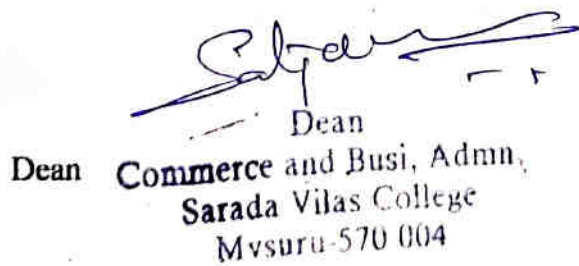 Dean
Dean Commerce and Busi, Admn,
Sarada Vilas College
Mysuru-570 004